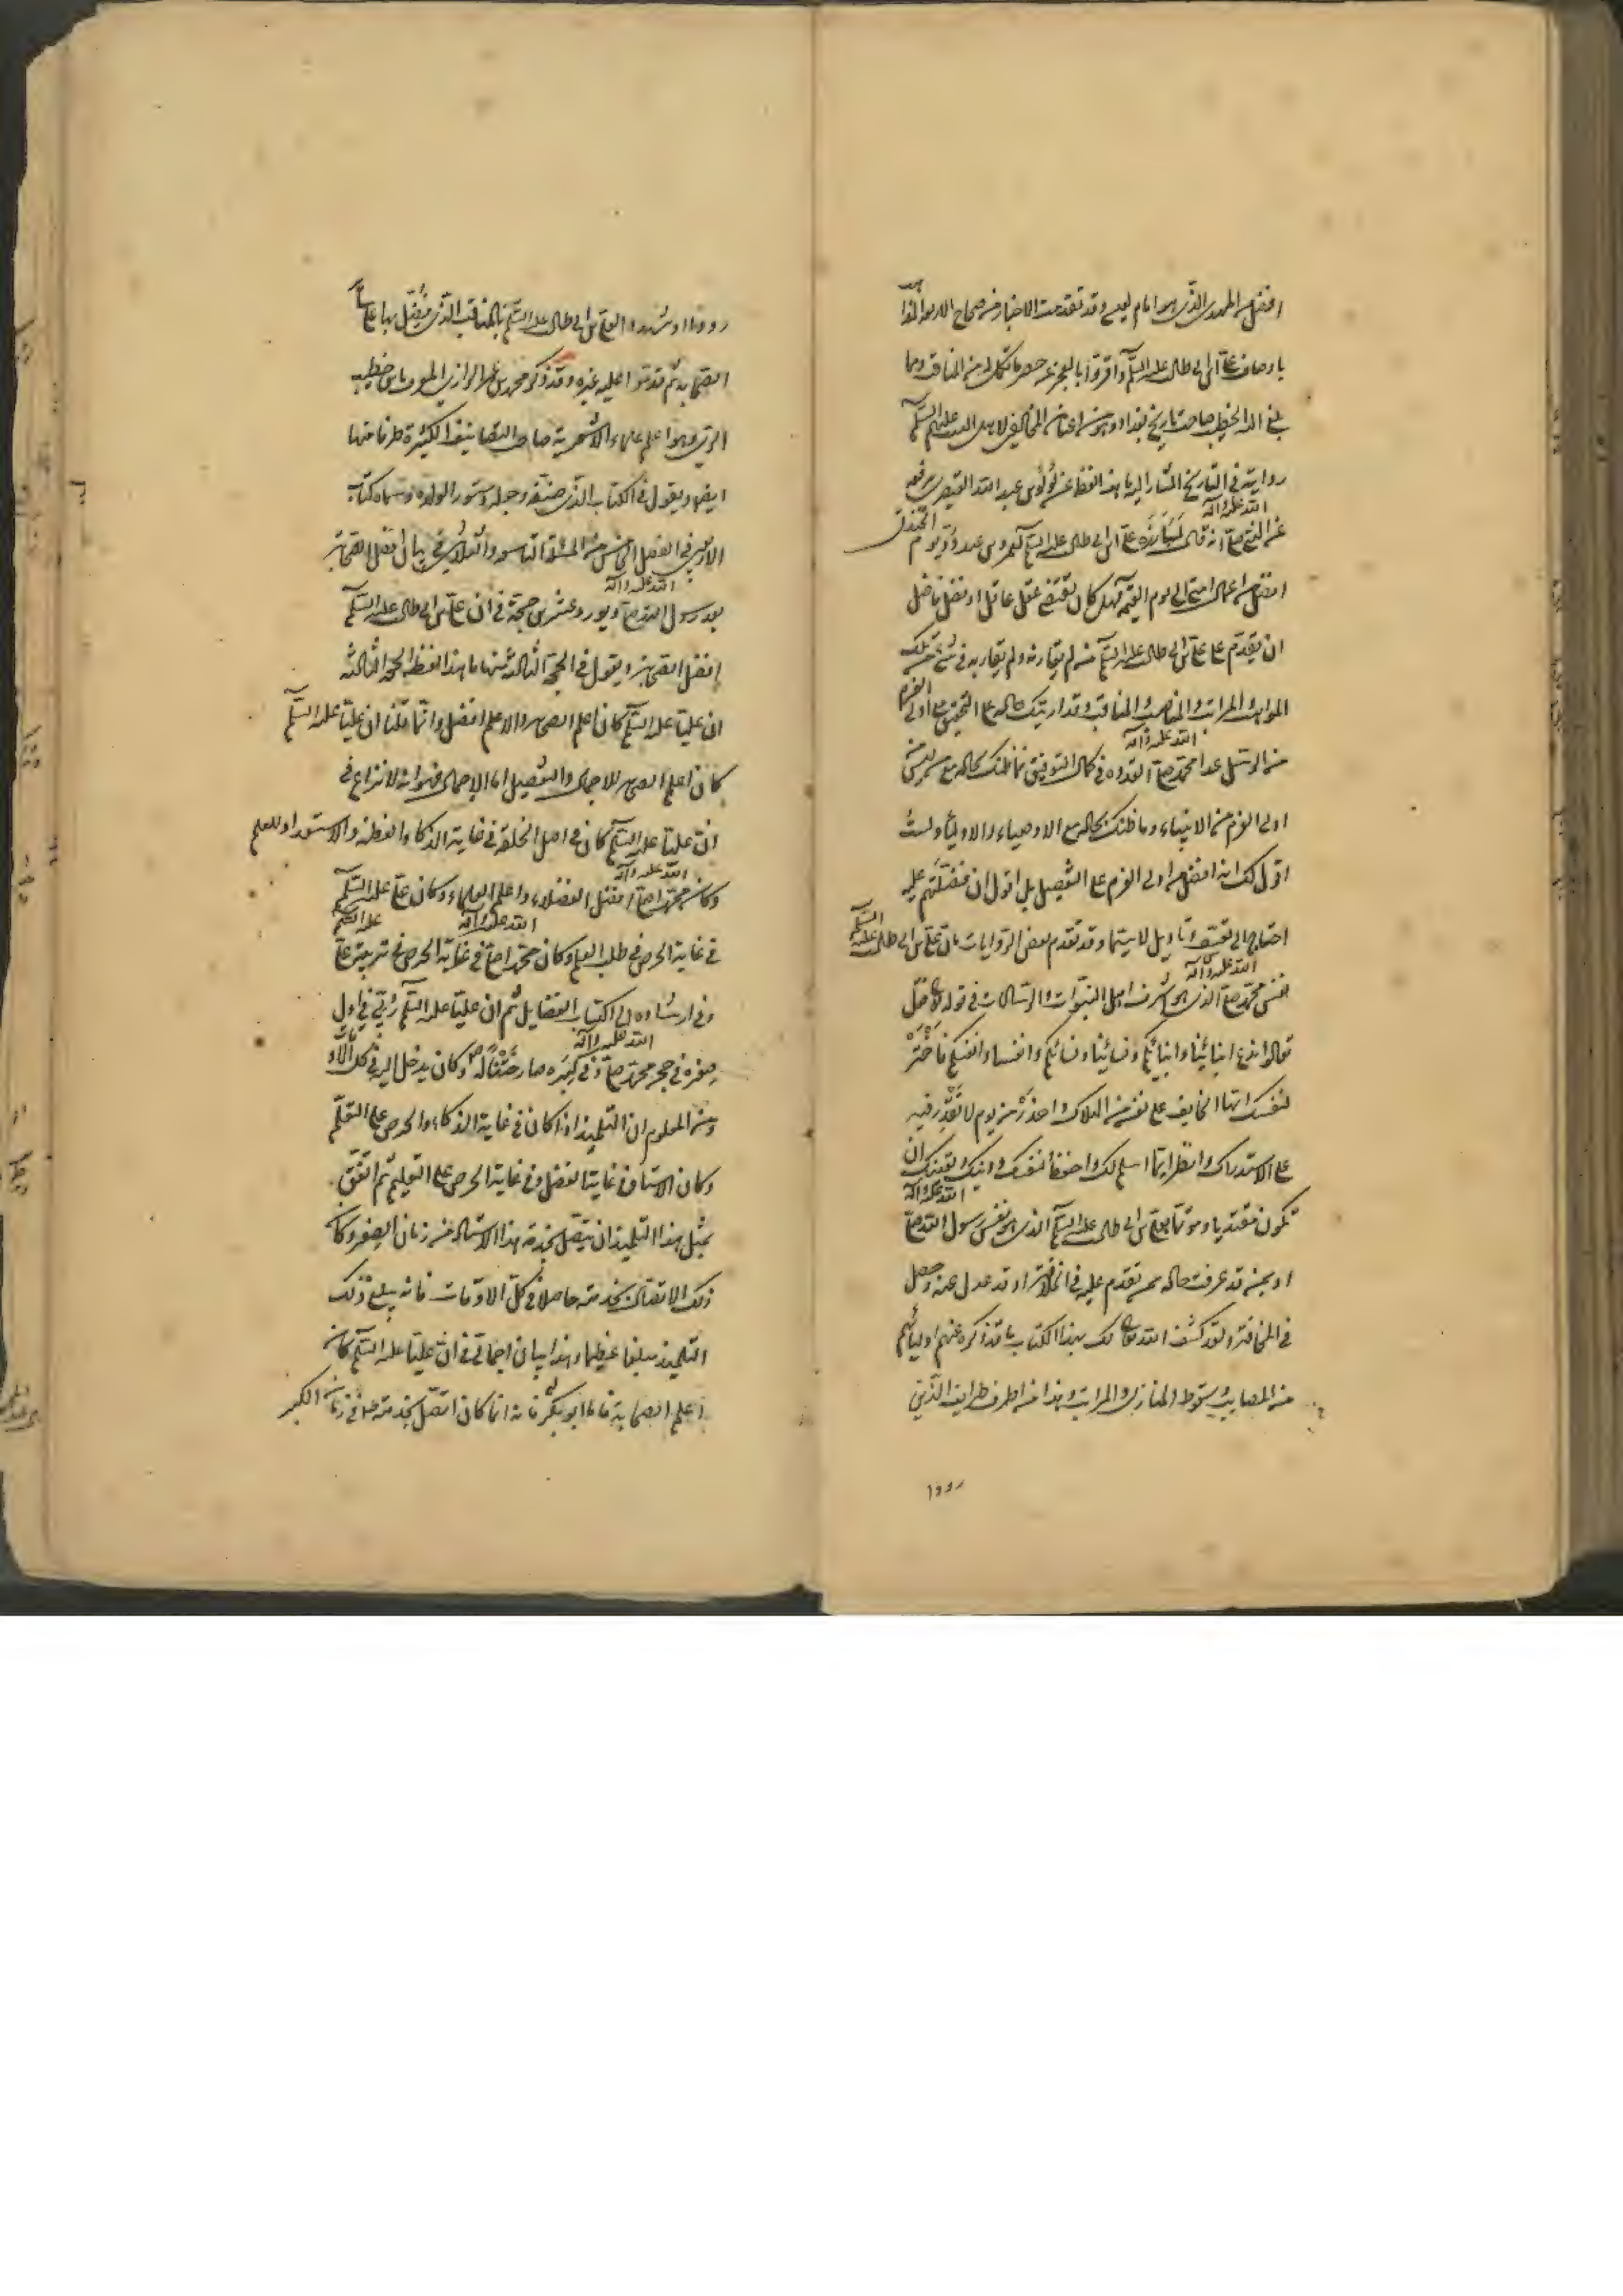 افضل من المهدى الذى هو امام لعيسى وقد تقدمت الاخبار من صحاح الاربعة
باوصاف على بن ابى طالب عليه السلم واقروا بالعجز عن حصر ما تكمل له من المناقب ومما
بلغ اليه الخطيب صاحب تاريخ بغداد وهو من اعيان المخالفين لاهل البيت عليهم السلم
روايته فى التاريخ المشار اليه ما هذا لفظه عن لؤلؤ بن عبد الله القيصرى يرفعه
عن النبى صلى الله عليه وآله انه قال لمبارزة على بن ابى طالب عليه السلم لعمرو بن عبد ود يوم الخندق
افضل من اعمال امتى الى يوم القيمة فهل كان يقتضى عقل عاقل او فضل فاضل
ان يقدم على على بن ابى طالب عليه السلم من لم يقارنه ولم يقاربه فى شئ من تلك
المواهب والمراتب والمناصب والمناقب وقد اريتك حاله على التحقيق مع اولى العزم
من الرسل عدا محمد صلى الله عليه وآله القدوة فى كمال التوفيق فما ظنك بحاله مع من ليس من
اولى العزم من الانبياء وما ظنك بحاله مع الاوصياء والاولياء ولست
اقول لك انه افضل من اولى العزم على التفصيل بل اقول ان فضلتهم عليه
احتاج الى تعسف وتاويل لا سيما وقد تقدم بعض الروايات بان على بن ابى طالب عليه السلم
نفس محمد صلى الله عليه وآله الذى هو اشرف اهل النبوات والرسالات فى قوله تعالى قل
تعالوا ندع ابنائنا وابنائكم ونسائنا ونسائكم وانفسنا وانفسكم فاختر
لنفسك ايها الخايف على نفسه من الهلاك واحذر من يوم لا تقدر فيه
على الاستدراك وانظر ايما اسلم لك واحفظ لنفسك ودينك ويقينك ان
تكون مقتديا ومؤتما بعلى بن ابى طالب عليه السلم الذى هو نفس رسول الله صلى الله عليه وآله
او بمن قد عرفت حاله ممن تقدم عليه فى الخلافة او قد عدل عنه وحصل
فى المخافة ولقد كشف الله تعالى لك بهذا الكتاب ما قد ذكره عنهم اوليائهم
من المصايب وسقوط المنازل والمراتب وهذا من اطرف طرايف الذين
رووا او شهدوا لعلى بن ابى طالب عليه السلم بالمناقب الذى يفضل بها على ساير
الصحابة ثم قدموا عليه غيره وقد ذكر محمد بن عمر الرازى المعروف بابن خطيب
الرى وهو اعلم علماء الاشعرية صاحب التصانيف الكثيرة طرفا منها
ايضا ويقول فى الكتاب الذى صنفه وجعله دستورا لولده وسماه كتاب
الاربعين فى الفصل الخامس من المسئلة التاسعة والثلاثين فى بيان افضل الصحابة
بعد رسول الله صلى الله عليه وآله ويورد عشرين حجة فى ان على بن ابى طالب عليه السلم
افضل الصحابة ويقول فى الحجة الثالثة منها ما هذا لفظه الحجة الثالثة
ان عليا عليه السلم كان اعلم الصحابة والاعلم افضل وانما قلنا ان عليا عليه السلم
كان اعلم الصحابة للاجمال والتفصيل اما الاجمال فهو انه لا نزاع فى
ان عليا عليه السلم كان فى اصل الخلقة فى غاية الذكاء والفطنة والاستعداد للعلم
وكان محمد صلى الله عليه وآله افضل الفضلاء واعلم العلماء وكان على عليه السلم
فى غاية الحرص فى طلب العلم وكان محمد صلى الله عليه وآله فى غاية الحرص فى تربية على عليه السلم
وفى ارشاده الى اكتساب الفضايل ثم ان عليا عليه السلم ربى فى اول
صغره فى حجر محمد صلى الله عليه وآله وفى كبره صار ختنا له وكان يدخل اليه فى كل الاوقات
ومن المعلوم ان التلميذ اذا كان فى غاية الذكاء والحرص على التعلم
وكان الاستاذ فى غاية الفضل وفى غاية الحرص على التعليم ثم اتفق
لمثل هذا التلميذ ان يتصل بخدمة هذا الاستاد من زمان الصغر وكان
ذلك الاتصال بخدمته حاصلا فى كل الاوقات فانه يبلغ ذلك
التلميذ مبلغا عظيما وهذا بيان اجمالى فى ان عليا عليه السلم كان
اعلم الصحابة فاما ابو بكر فانه انما كان اتصل بخدمته فى زمان الكبر